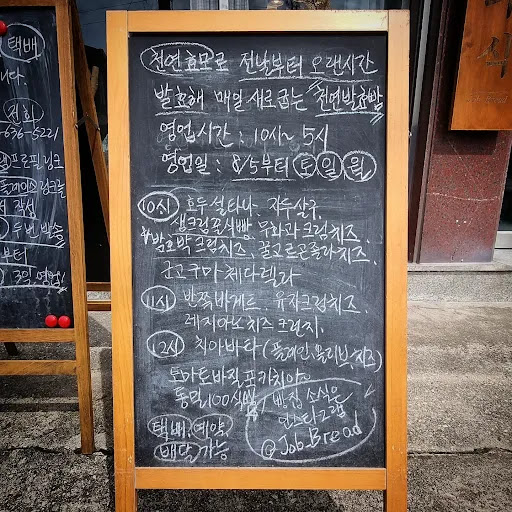 택배
니다.
전화
-636-5221
프로필링크
플레이스링크를
작성
두번 발송
부터
3일 영업!
천연효모로 전날부터 오랜시간
발효해 매일 새로굽는 천연발효빵
영업시간 : 10시~ 5시
영업일 : 8/5부터 토 일 월
10시 호두설타나. 자두살구.
생크림꿀식빵 무화과크림치즈.
밤호박크림치즈. 꿀고르곤졸라치즈.
군고구마체다렐라
11시 반쪽바게트. 유자크림치즈.
레지아노치즈크랜지.
12시 치아바타 (플레인.올리브.치즈)
토마토바질포카치아
통밀100식빵
택배.예약.
배달 가능
빵집 소식은
인스타그램
@Job_Bread